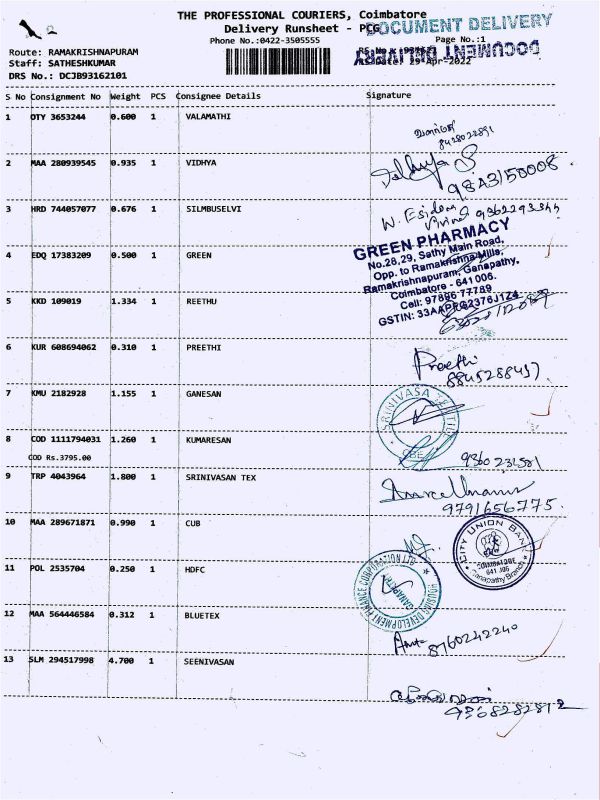 THE PROFESSIONAL COURIERS, Coimbatore
Delivery Runsheet - PCG
DOCUMENT DELIVERY
Phone No.:0422-3505555
Page No.:1
DOCUMENT DELIVERY
29-Apr-2022
Route: RAMAKRISHNAPURAM
Staff: SATHESHKUMAR
DRS No.: DCJB93162101
S No Consignment No Weight PCS Consignee Details Signature
1 OTY 3653244 0.600 1 VALAMATHI
2 MAA 280939545 0.935 1 VIDHYA
3 HRD 744057077 0.676 1 SILMBUSELVI
4 EDQ 17383209 0.500 1 GREEN
GREEN PHARMACY
No.28,29, Sathy Main Road,
Opp. to Ramakrishna Mills,
Ramakrishnapuram, Ganapathy,
Coimbatore - 641 006.
Cell: 97886 77789
5 KKD 109019 1.334 1 REETHU
6 KUR 608694062 0.310 1 PREETHI
Preethi
7 KMU 2182928 1.155 1 GANESAN
SRINIVASA TEXTILE
CBE
8 COD 1111794031 1.260 1 KUMARESAN
COD Rs.3795.00
9 TRP 4043964 1.800 1 SRINIVASAN TEX
9791656775
10 MAA 289671871 0.990 1 CUB
CITY UNION BANK
COIMBATORE
641 006
Ganapathy Branch
11 POL 2535704 0.250 1 HDFC
HOUSING DEVELOPMENT FINANCE CORPORATION
GANAPATHY
12 MAA 564446584 0.312 1 BLUETEX
8760242240
13 SLM 294517998 4.700 1 SEENIVASAN